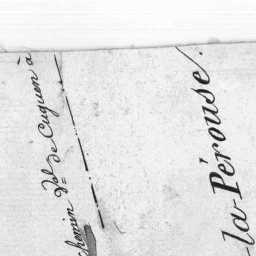 chemin Val de Cuguen à
-la-Pérouse.